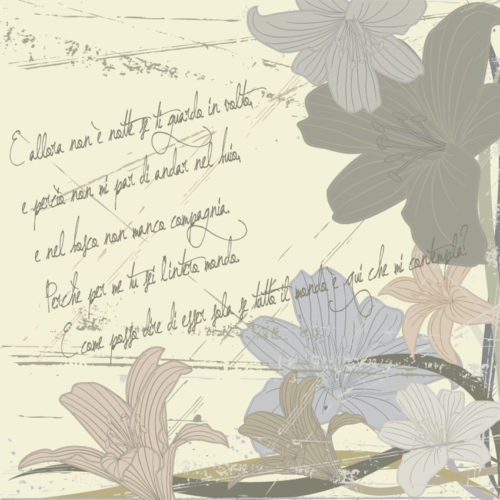 È allora non è notte se ti guardo in volto,
e perciò non mi par di andar nel buio,
e nel bosco non manco compagnia.
Perché per me tu sei l'intero mondo.
E come posso dire di esser sola se tutto il mondo è qui che mi contempla?